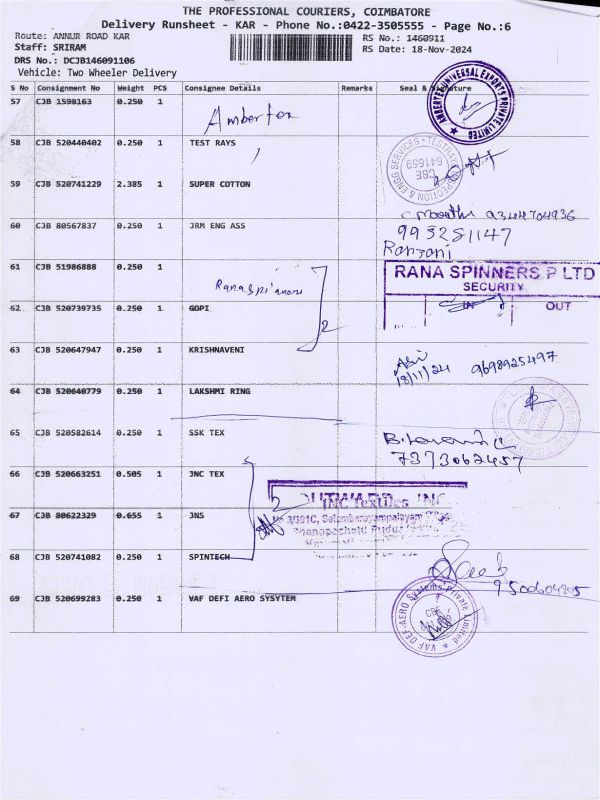 THE PROFESSIONAL COURIERS, COIMBATORE
Delivery Runsheet - KAR - Phone No.:0422-3505555 - Page No.:6
Route: ANNUR ROAD KAR
RS No.: 1460911
Staff: SRIRAM
RS Date: 18-Nov-2024
DRS No.: DCJB146091106
Vehicle: Two Wheeler Delivery
S No Consignment No Weight PCS Consignee Details Remarks Seal & Signature
57 CJB 1598163 0.250 1
Ambertex
AMBERTEX UNIVERSAL EXPORTS PRIVATE LIMITED
58 CJB 520440402 0.250 1 TEST RAYS
CBE 641659
59 CJB 520741229 2.385 1 SUPER COTTON
9344704936
60 CJB 80567837 0.250 1 JRM ENG ASS
995281147
Ranjani
61 CJB 51986888 0.250 1
Rana Spinners
RANA SPINNERS P LTD
SECURITY
IN OUT
62 CJB 520739735 0.250 1 GOPI
2
63 CJB 520647947 0.250 1 KRISHNAVENI
18/11/24 9698925497
64 CJB 520640779 0.250 1 LAKSHMI RING
65 CJB 520582614 0.250 1 SSK TEX
7373062457
66 CJB 520663251 0.505 1 JNC TEX
OUTWARD
JNC Textiles INC
2
67 CJB 80622329 0.655 1 JNS
68 CJB 520741082 0.250 1 SPINTECH
69 CJB 520699283 0.250 1 VAF DEFI AERO SYSYTEM
VAF DEF-AERO Systems Private Limited